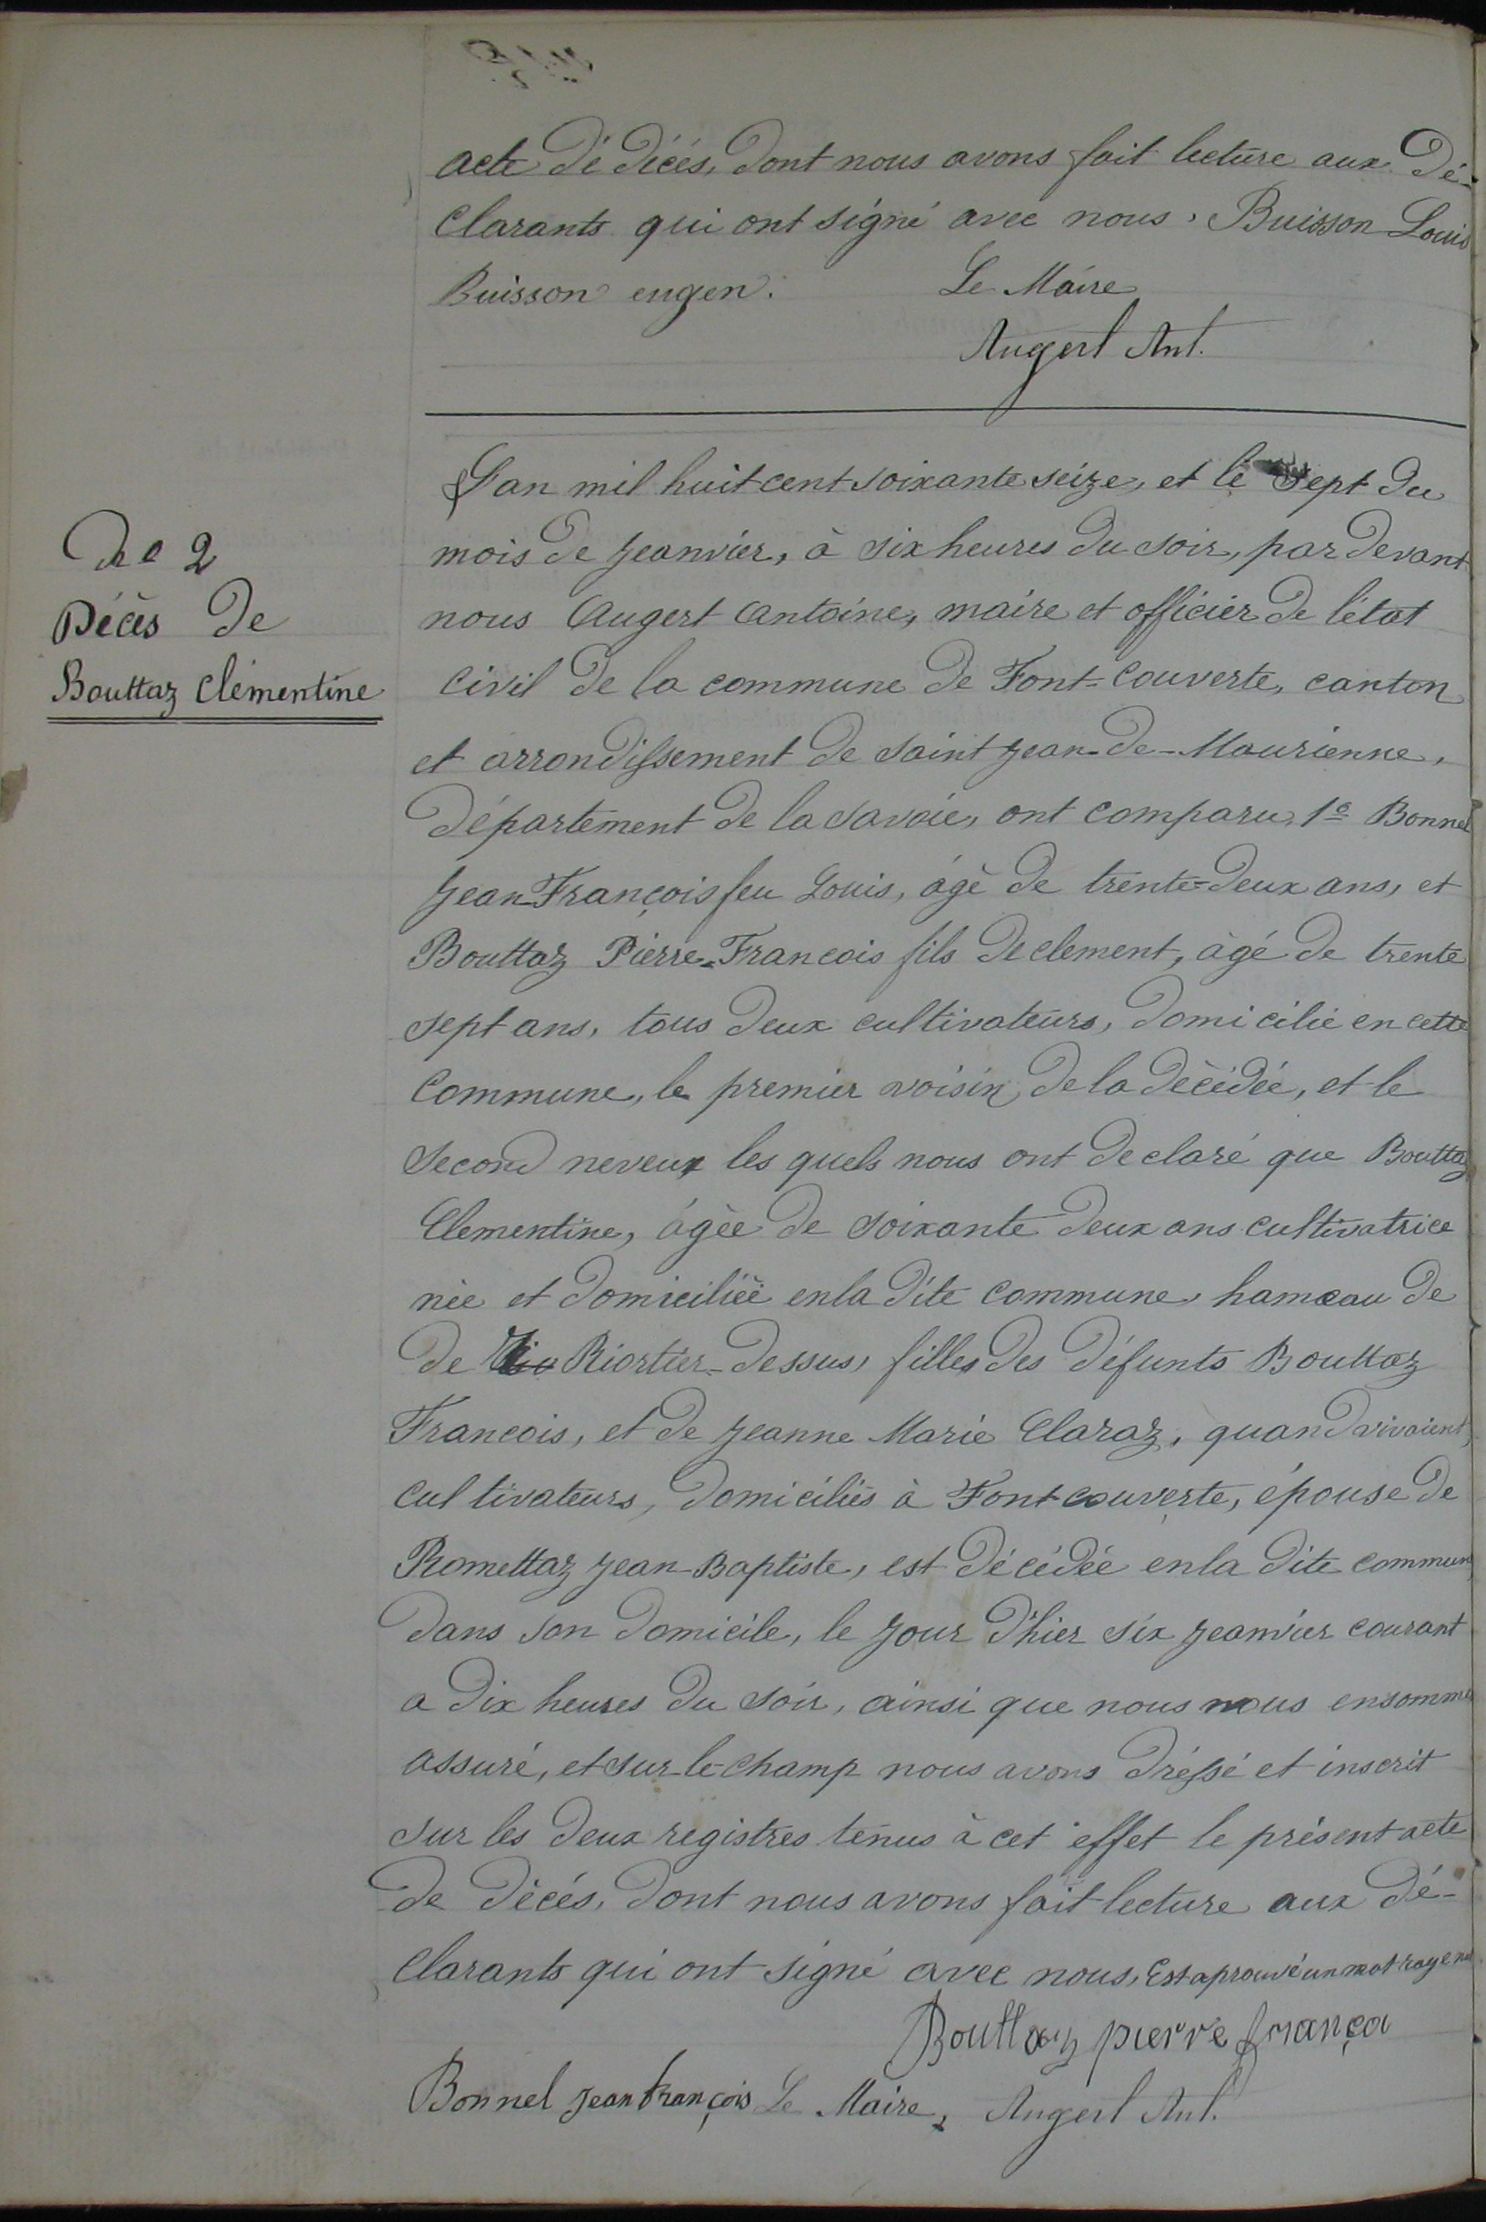 acte dé décés, dont nous avons fait lecture aux dé-
clarants qui ont signé avec nous. Buisson Louis
Buisson eugen. Le Maire
Augert Ant.
L'an mil huit cent soixante seize, et le sept du
mois de Jeanvier, à six heures du soir, par devant
nous Augert Antoine, maire et officier de l'état
civil de la commune de Font-Couverte, canton
et arrondissement de saint Jean-de-Maurienne,
département de la savoie, ont comparu, 1º Bonnel
Jean-François feu Louis, âgé de trente-deux ans, et
Bouttaz Pierre-Francois fils de clement, âgé de trente
sept ans, tous deux cultivateurs, domicilié en cette
Commune, le premier voisin de la décédée, et le
second neveux les quels nous ont declaré que Bouttaz
Clementine, âgée de soixante deux ans cultivatrice
née et domiciliée en la dite commune, hameau de
de Riortier-dessus, filles des défunts Bouttaz
Francois, et de Jeanne Marie Claraz, quand vivaient,
cultivateurs, domiciliés à Font couverte, épouse de
Romettaz Jean-Baptiste, est décédée en la dite commun
dans son domicile, le jour d'hier six jeanvier courant
a dix heures du soir, ainsi que nous nous en somme
assuré, et sur-le-champ nous avons dressé et inscrit
sur les deux registres tenus à cet effet le présent acte
de décés, dont nous avons fait lecture aux dé-
clarants qui ont signé avec nous, Est aprouvé un mot rayé nul
Bouttaz pierre françoi
Bonnel Jean François Le Maire, Augert Ant.
No 2
Décès de
Bouttaz Clémentine